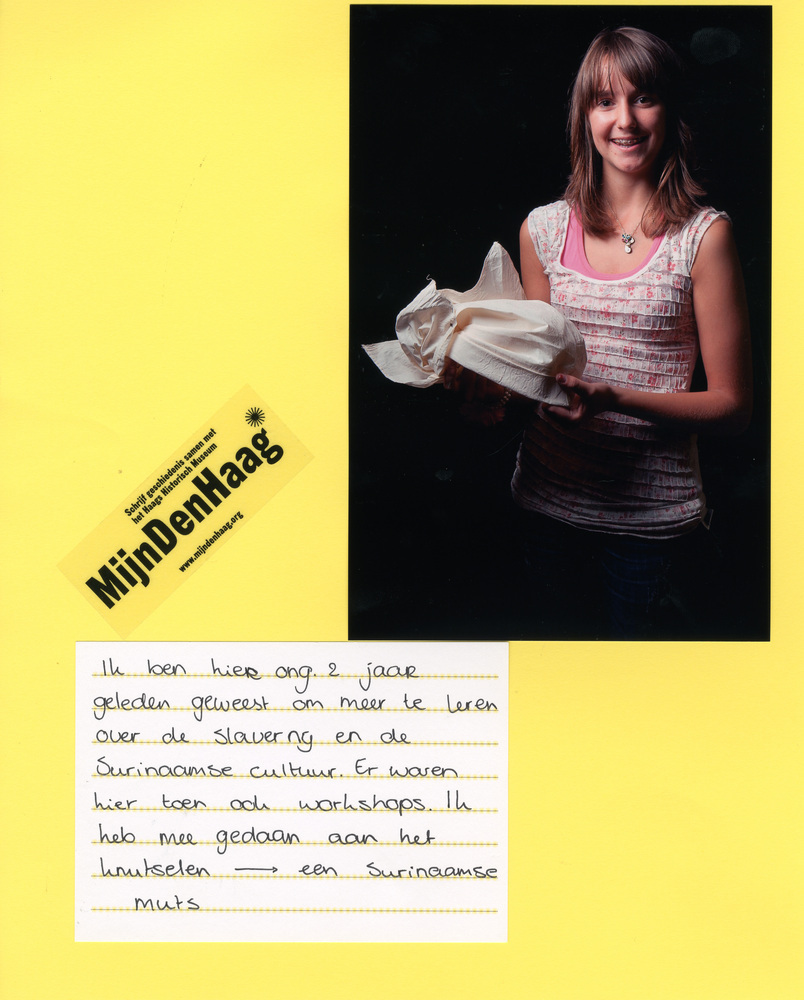 Schrijf geschiedenis samen met
het Haags Historisch Museum
MijnDenHaag
www.mijndenhaag.org
Ik ben hier ong. 2 jaar
geleden geweest om meer te leren
over de slaverny en de
Surinaamse cultuur. Er waren
hier toen ook workshops. Ik
heb mee gedaan aan het
knutselen → een Surinaamse
muts